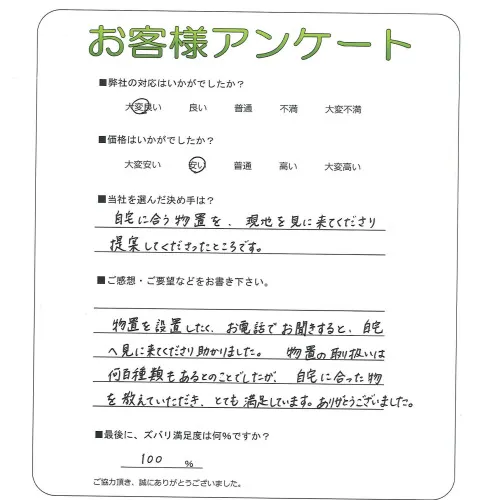 お客様アンケート
■弊社の対応はいかがでしたか？
大変良い 良い 普通 不満 大変不満
■価格はいかがでしたか？
大変安い 安い 普通 高い 大変高い
■当社を選んだ決め手は？
自宅に合う物置を、現地を見に来てくださり
提案してくださったところです。
■ご感想・ご要望などをお書き下さい。
物置を設置したく、お電話でお聞きすると、自宅
へ見に来てくださり助かりました。 物置の取り扱いは
何百種類もあるとのことでしたが、自宅に合った物
を教えていただき、とても満足しています。ありがとうございました。
■最後に、ズバリ満足度は何%ですか？
100 %
ご協力頂き、誠にありがとうございました。